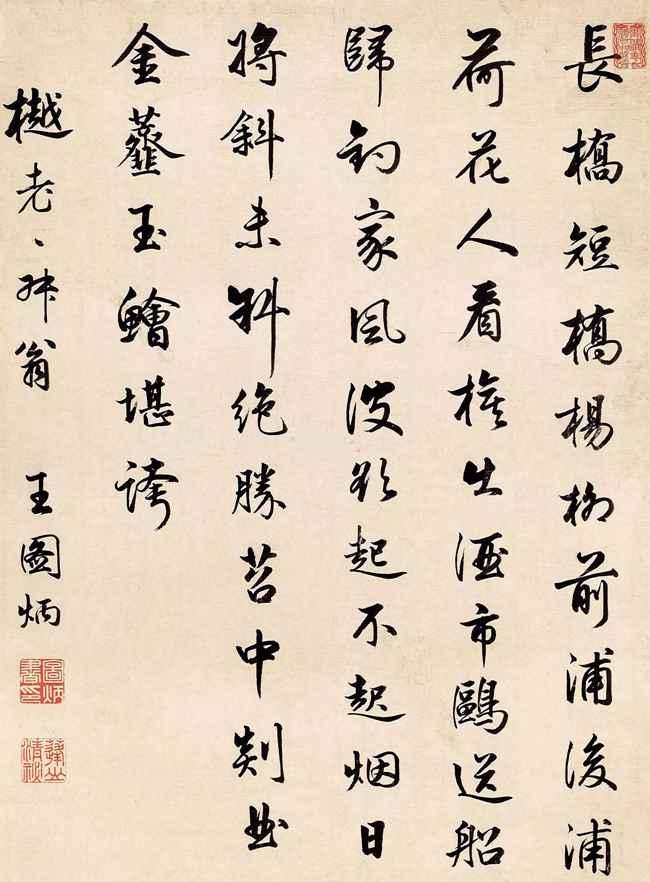 長橋短橋楊柳前浦後浦
荷花人看旗出酒市鷗送船
歸釣家風波欲起不起烟日
將斜未斜絕勝苕中剡曲
金虀玉鱠堪誇
樾老〻年翁 王圖炳